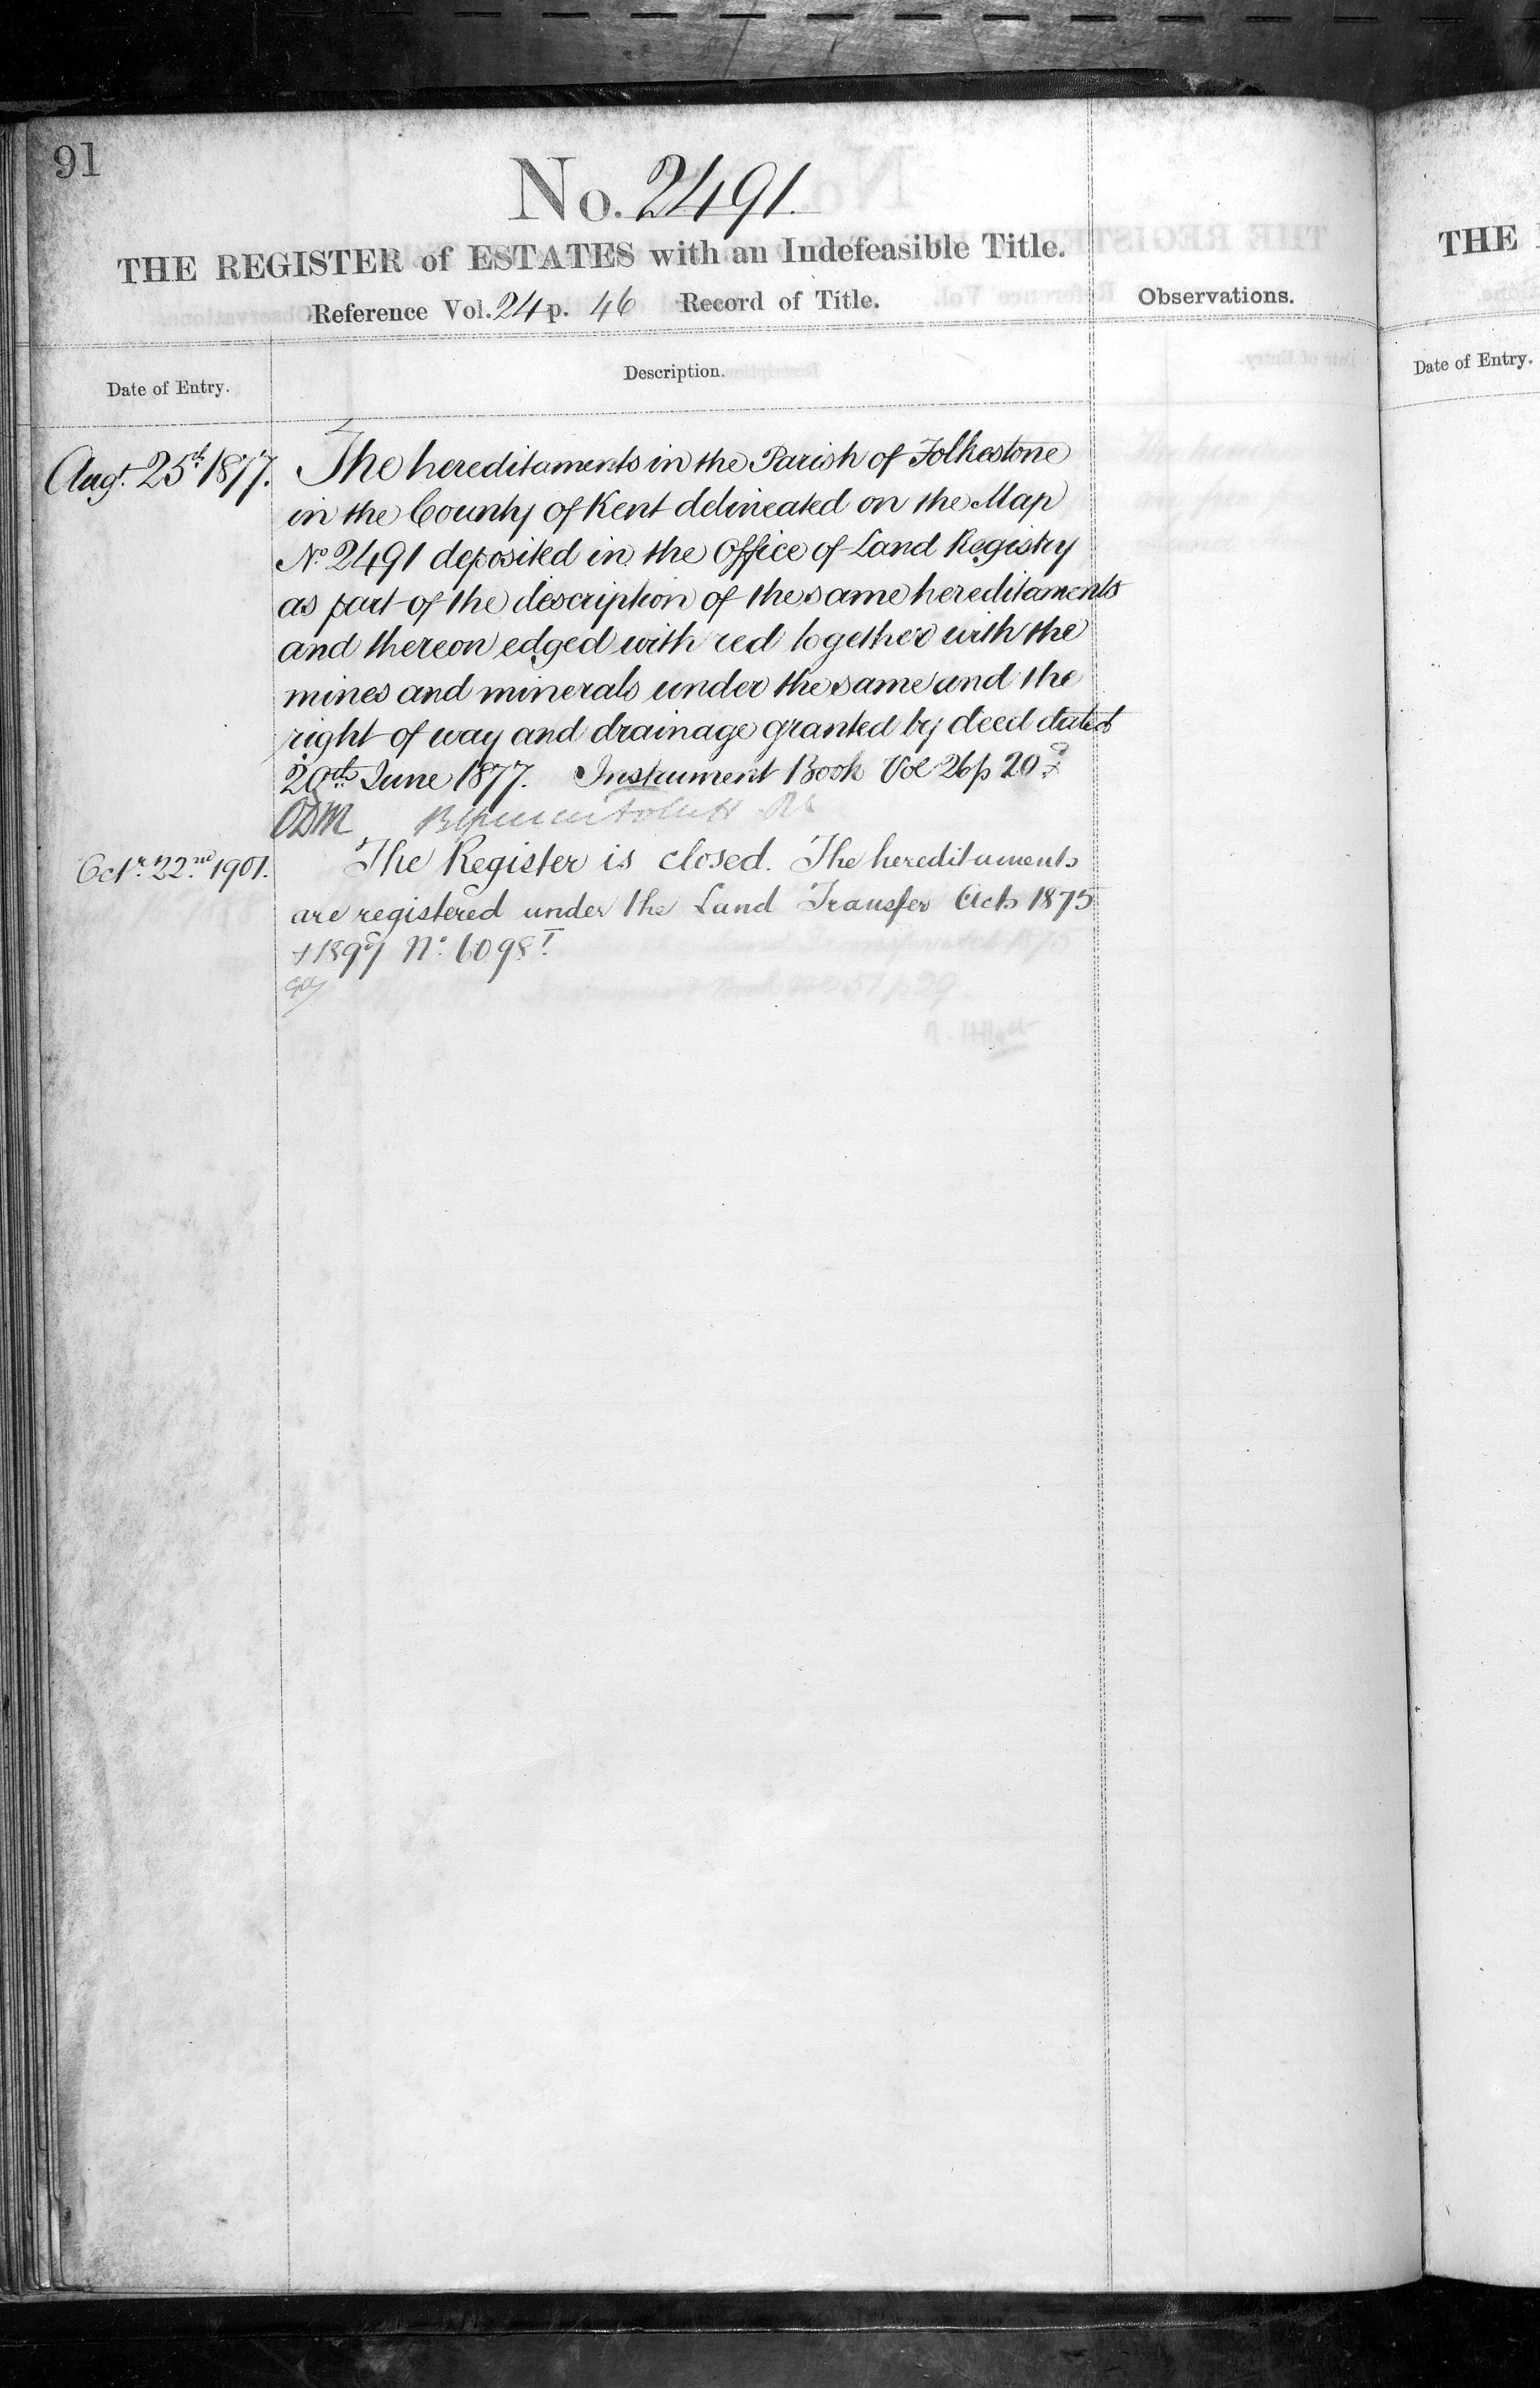 91
No. 2491.
THE REGISTER of ESTATES with an Indefeasible Title.
Reference Vol. 24 p. 46 Record of Title.
Observations.
Date of Entry.
Description.
Augt. 25th 1877.
The hereditaments in the Parish of Folkestone
in the County of Kent delineated on the Map
No. 2491 deposited in the Office of Land Registry
as part of the description of the same hereditaments
and thereon edged with red together with the
mines and minerals under the same and the
right of way and drainage granted by deed dated
20th June 1877. Instrument Book Vol 26 p 20
ODM
Octr. 22nd 1901.
The Register is closed. The hereditaments
are registered under the Land Transfer Acts 1875
+ 1897 No. 6098
THE
Date of Entry.